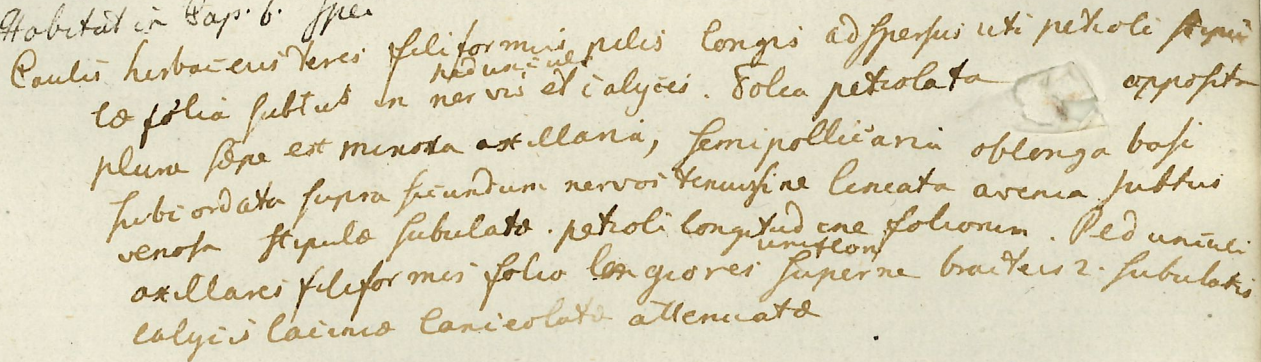 Habitat in Cap. b. Spei
Caulis herbaceus teres filiformis pilis longis adspersus uti petioli stipu
læ folia subtus in nervis pedunculi et calyces. Folia petiolata opposita
plura sæpe et minora axillaria, semipollicaria oblonga basi
subcordata supra secundum nervos tenuissime lineata avenia subtus
venosa stipulæ subulatæ. petioli longitudine foliorum. Pedunculi
axillares filiformes folio longiores uniflori superne bracteis 2. subulatis
calycis laciniæ lanceolatæ attenuatæ